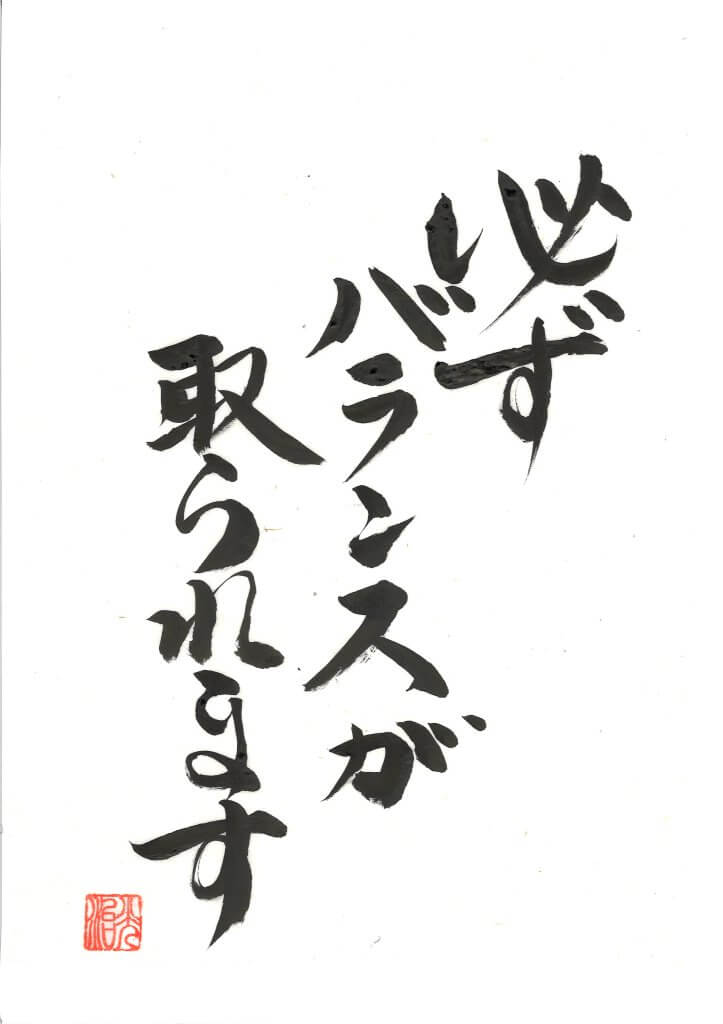 必ず
バランスが
取られます